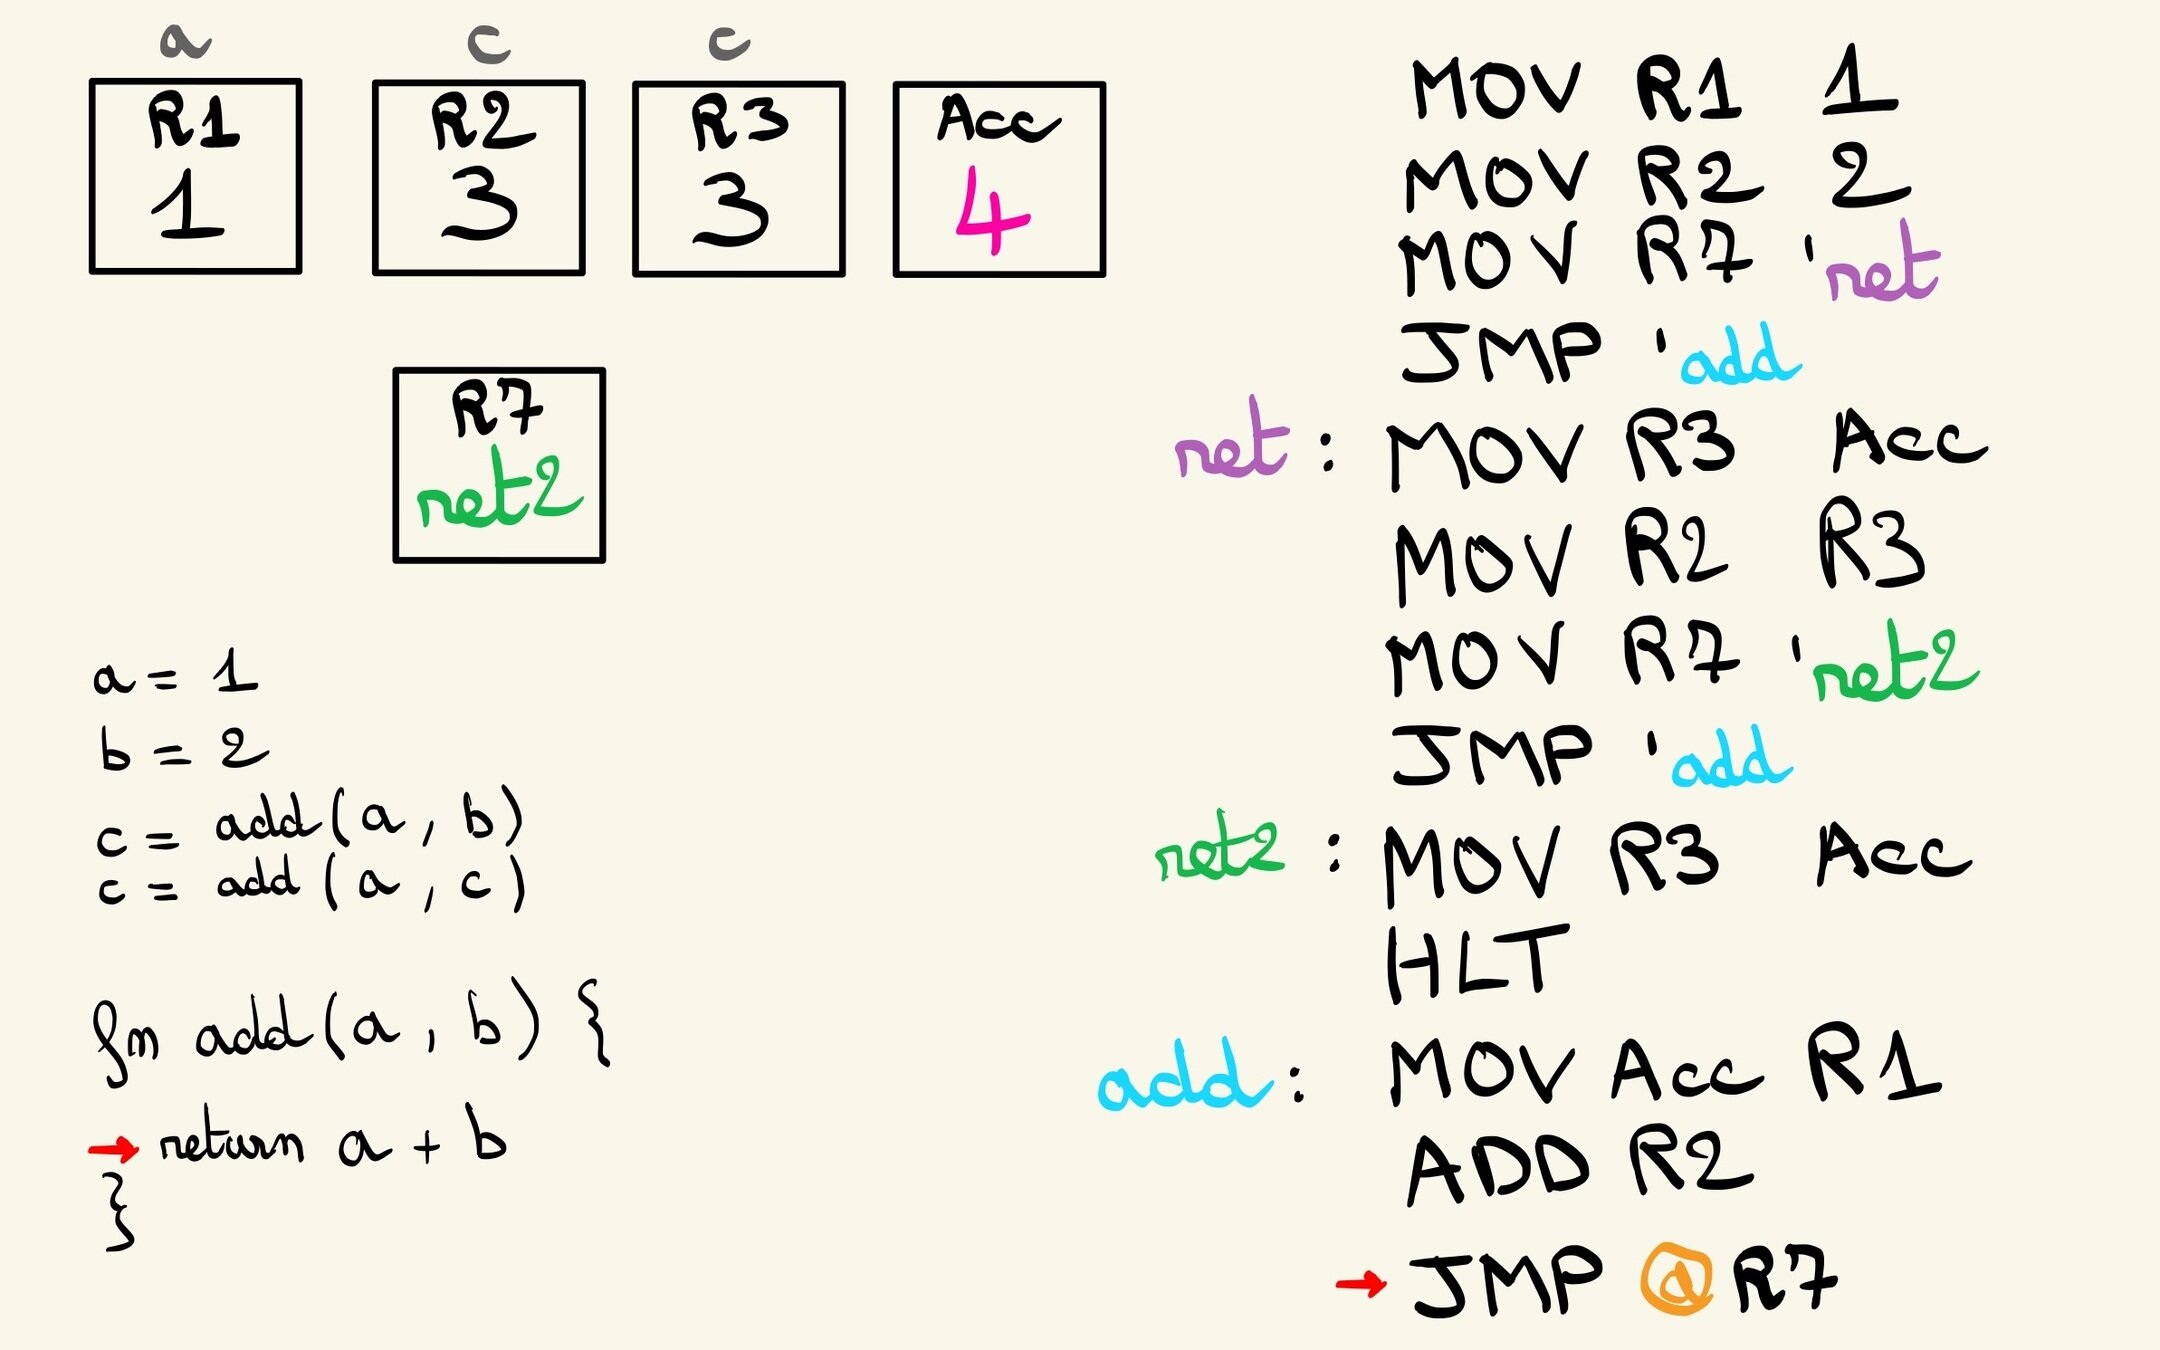 a c c
R1 R2 R3 Acc
1 3 3 4
R7
ret2
a = 1
b = 2
c = add(a, b)
c = add(a, c)
fn add(a, b) {
→ return a + b
}
MOV R1 1
MOV R2 2
MOV R7 'ret
JMP 'add
ret: MOV R3 Acc
MOV R2 R3
MOV R7 'ret2
JMP 'add
ret2: MOV R3 Acc
HLT
add: MOV Acc R1
ADD R2
→ JMP @R7